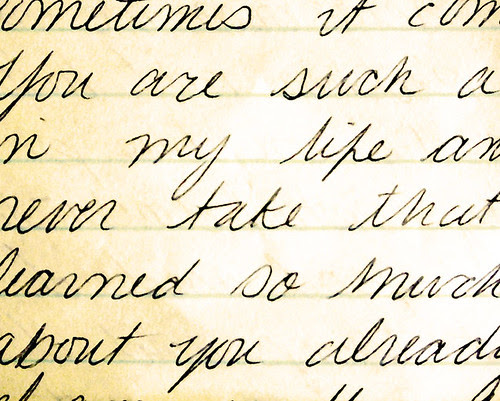 ometimes it com
You are such a
in my life an
never take that
learned so much
about you alread